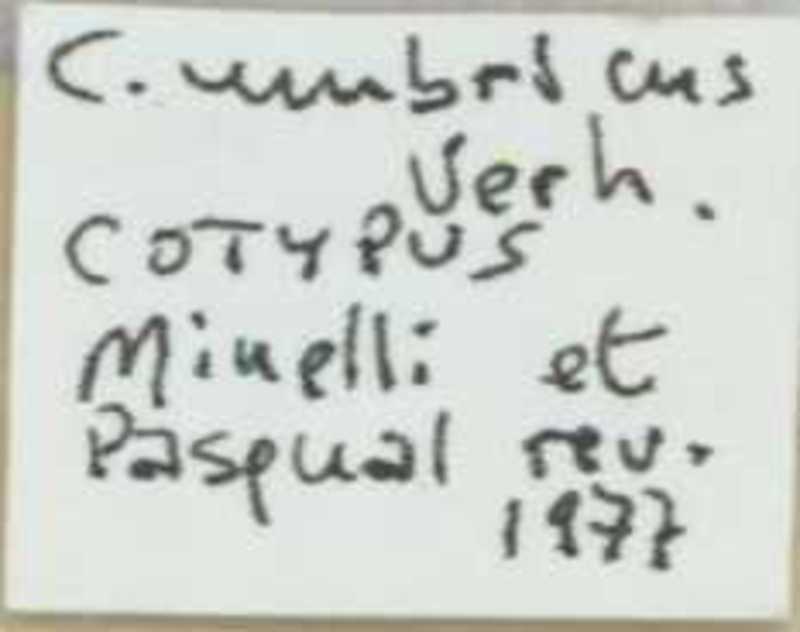 C. umbricus
Verh.
COTYPUS
Minelli et
Pasqual rev.
1977